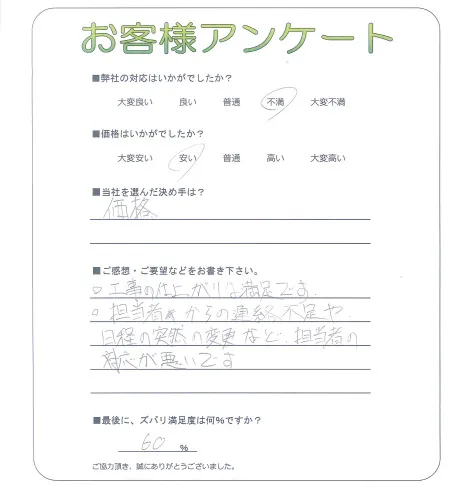 お客様アンケート
■弊社の対応はいかがでしたか？
大変良い 良い 普通 不満 大変不満
■価格はいかがでしたか？
大変安い 安い 普通 高い 大変高い
■当社を選んだ決め手は？
価格
■ご感想・ご要望などをお書き下さい。
○工事の仕上がりは満足です.
○担当者からの連絡不足や
日程の突然の変更など、担当者の
対応が悪いです
■最後に、ズバリ満足度は何％ですか？
60 ％
ご協力頂き、誠にありがとうございました。